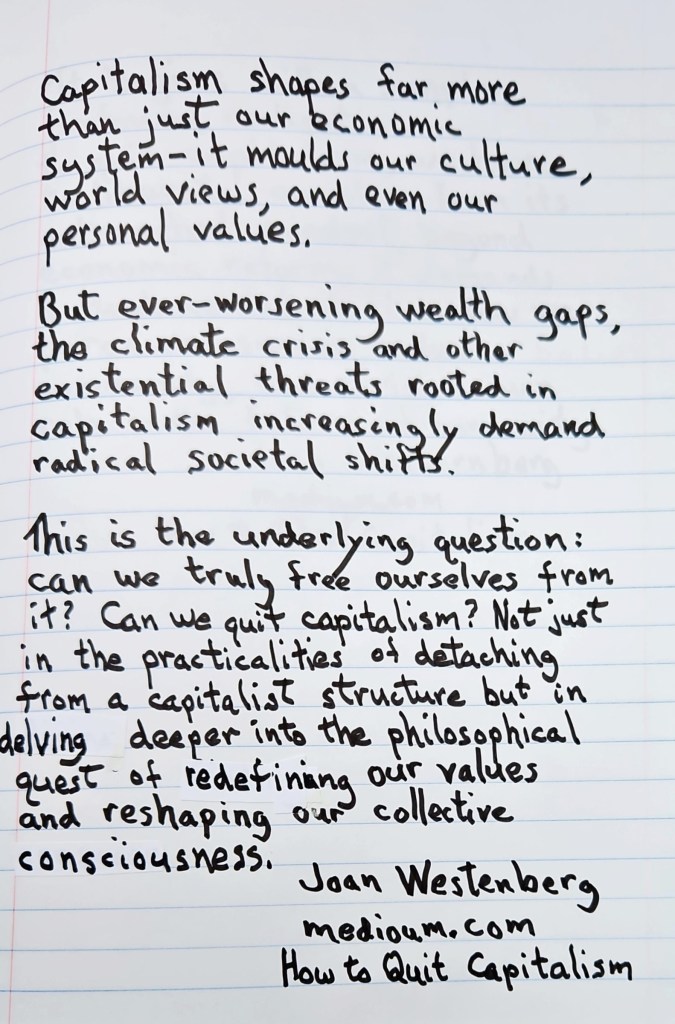 Capitalism shapes far more
than just our economic
system-it moulds our culture,
world views, and even our
personal values.
But ever-worsening wealth gaps,
the climate crisis and other
existential threats rooted in
capitalism increasingly demand
radical societal shifts.
This is the underlying question:
can we truly free ourselves from
it? Can we quit capitalism? Not just
in the practicalities of detaching
from a capitalist structure but in
delving deeper into the philosophical
quest of redefining our values
and reshaping our collective
consciousness.
Joan Westenberg
medioum.com
How to Quit Capitalism